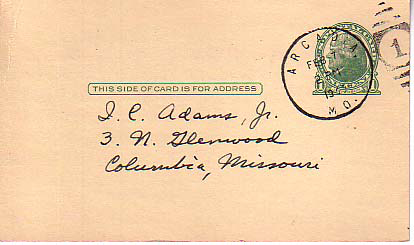 ARCADIA
FEB 7
MO.
1
THIS SIDE OF CARD IS FOR ADDRESS
I. C. Adams, Jr.
3. N. Glenwood
Columbia, Missouri